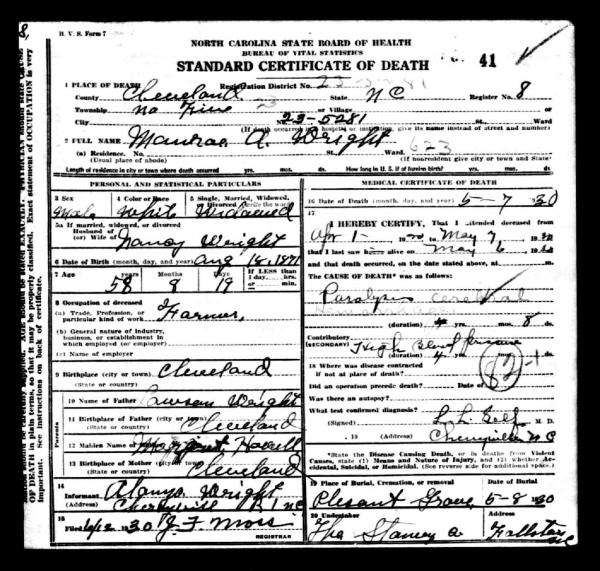 B. V. S. Form 7
NORTH CAROLINA STATE BOARD OF HEALTH
BUREAU OF VITAL STATISTICS
STANDARD CERTIFICATE OF DEATH
41
1 PLACE OF DEATH
Registration District No. 23-5281
County Cleveland
State NC
Register No. 8
Township No Nine
or Village
City 23-5281
No. St., Ward
(If death occurred in a hospital or institution, give its name instead of street and number)
2 FULL NAME A. Wright
623
(a) Residence. No. St., Ward.
(Usual place of abode) (If nonresident give city or town and State)
Length of residence in city or town where death occurred yrs. mos. ds. How long in U. S. if of foreign birth? yrs. mos. ds.
PERSONAL AND STATISTICAL PARTICULARS
3 Sex
4 Color or Race
5 Single, Married, Widowed,
Divorced (write the word)
Male White Widowed
5a If married, widowed, or divorced
Husband of
(or) Wife of Nancy Wright
6 Date of Birth (month, day, and year) Aug 18, 1871
7 Age years Months Days If LESS than
1 day, hrs.
or min.
58 8 19
8 Occupation of deceased
(a) Trade, Profession, or
particular kind of work Farmer,
(b) General nature of Industry,
business, or establishment in
which employed (or employer)
(c) Name of employer
9 Birthplace (city or town) Cleveland
(State or country)
Parents
10 Name of Father Lawson Wright
11 Birthplace of Father (city or town)
(State or country) Cleveland
12 Maiden Name of Mother Margaret
13 Birthplace of Mother (city or town)
(State or country) Cleveland
14
Informant Wright
(Address) R 1 NC
15
Filed 30 J. F. Moss
REGISTRAR
MEDICAL CERTIFICATE OF DEATH
16 Date of Death (month, day, and year) 5-7 1930
17
I HEREBY CERTIFY, That I attended deceased from
Apr 1 1930 to May 7, 1930
that I last saw h alive on May 6, 1930
and that death occurred, on the date stated above, at m.
The CAUSE OF DEATH* was as follows:
Paralysis cerebral
(duration) yrs. mos. 8 ds.
Contributory
(SECONDARY) High Blood pressure
(duration) 4 yrs. mos. ds.
82-1
18 Where was disease contracted
if not at place of death?
Did an operation precede death? Date of
Was there an autopsy?
What test confirmed diagnosis?
(Signed) M. D.
, 19 (Address) Cherryville NC
*State the Disease Causing Death, or in deaths from Violent
Causes, state (1) Means and Nature of Injury, and (2) whether Accidental, Suicidal, or Homicidal. (See reverse side for additional space.)
19 Place of Burial, Cremation, or removal Date of Burial
Plesant Grove 5-8 1930
20 Undertaker (Address)
Stamey Fallston
NC